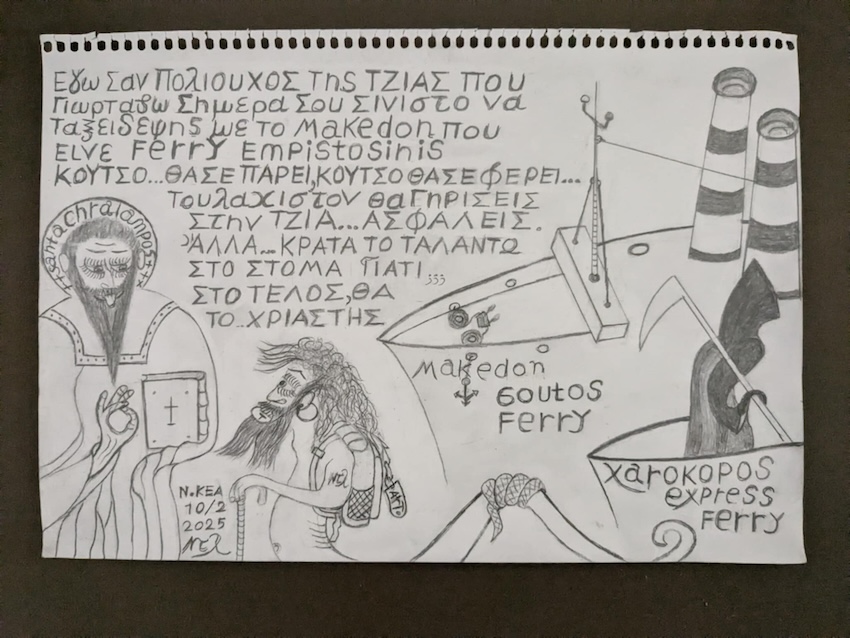 Εγω Σαν ΠΟλΙΟΥΧΟΣ Της ΤΖΙΑΣ ΠΟυ
Γιωρταζω Σημερα Σου ΣΙΝΙΣΤΟ να
ΤαΞειδεψης με το Makedon που
ΕΙΝΕ Ferry Empistosinis
ΚΟΥΤΣΟ...ΘΑ ΣΕ ΠΑΡΕΙ,ΚΟΥΤΣΟ ΘΑ ΣΕ ΦΕΡΕΙ...
Τουλαχιστον θα ΓΗΡΙΣΕΙΣ
ΣΤην ΤΖΙΑ...ΑΣΦΑΛΕΙΣ.
ΆΛΛΑ...ΚΡΑΤΑ ΤΟ ΤΑΛΑΝΤΩ
ΣΤΟ ΣΤΟΜΑ ΓΙΑΤΙ,,,
ΣΤΟ ΤΕΛΟΣ,ΘΑ
ΤΟ..ΧΡΙΑΣΤΗΣ
santachralampos
Makedon
Goutos
Ferry
xarokopos
express
Ferry
Ν.ΚΕΑ
10/2
2025